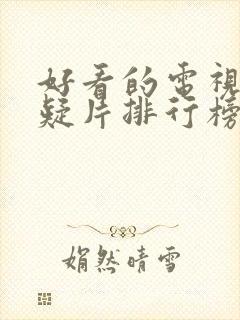 好看的電視
疑片排行榜
娟然晴雪